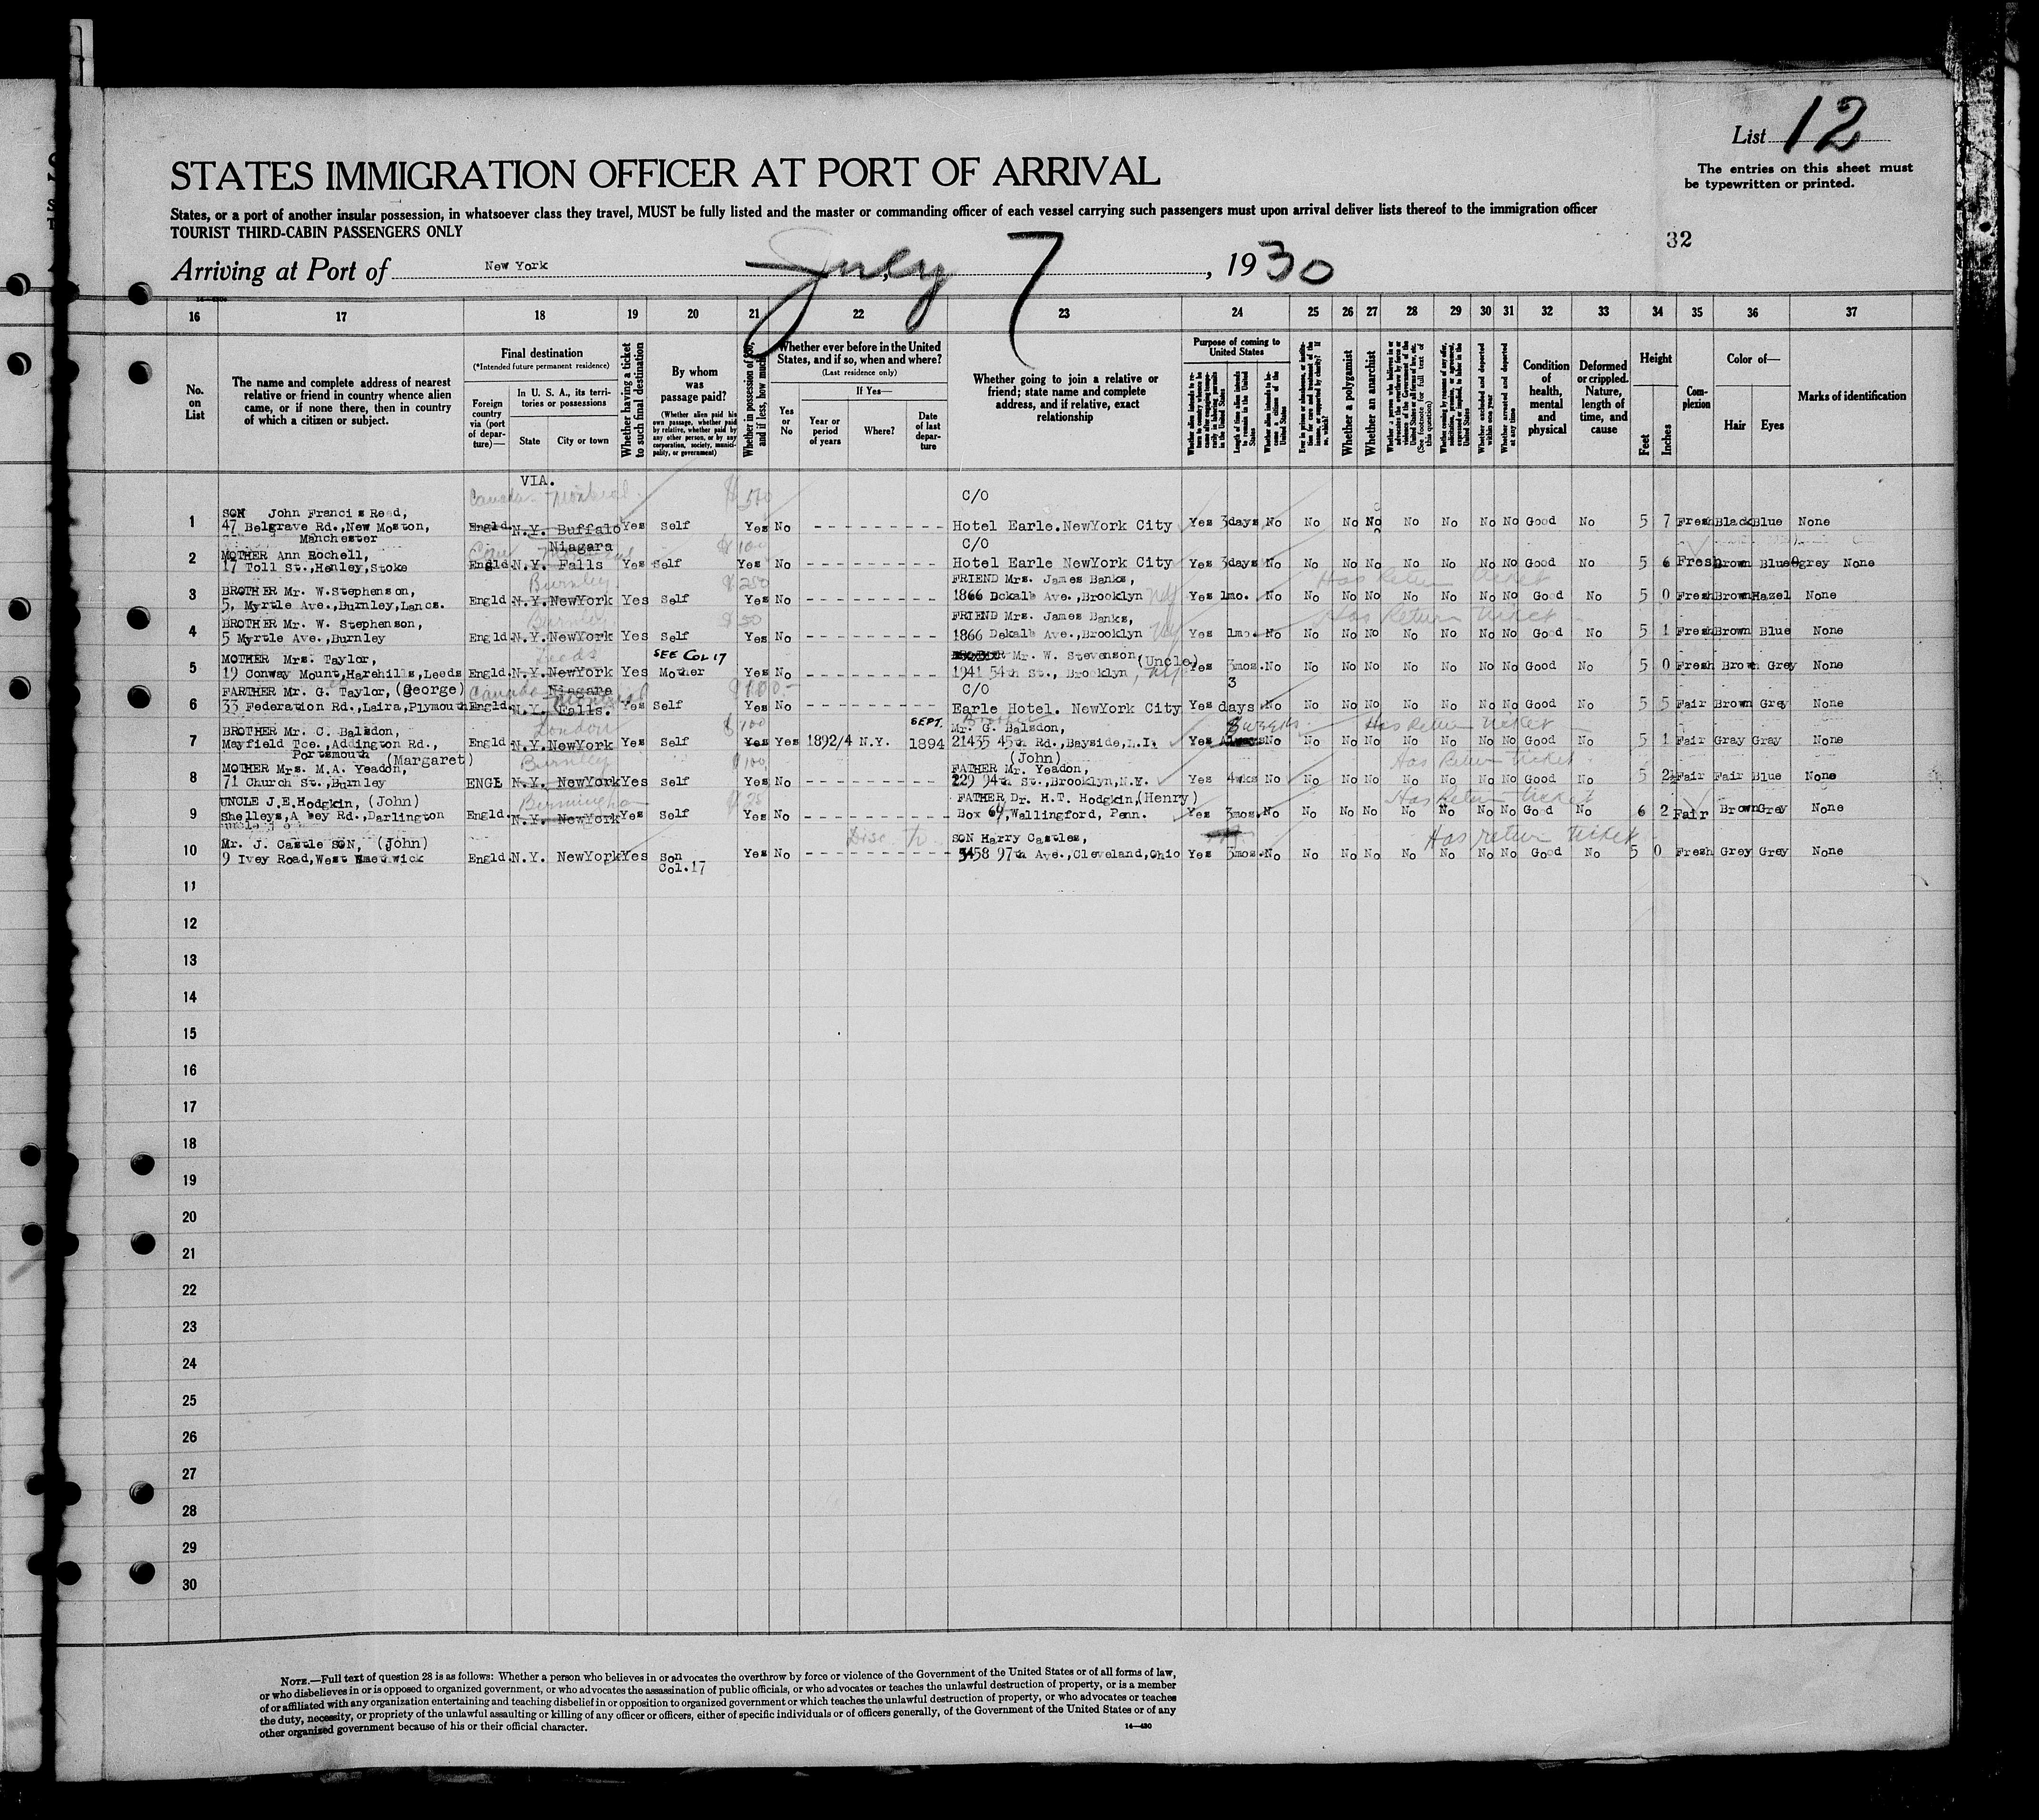 List 12
The entries on this sheet must
be typewritten or printed.
STATES IMMIGRATION OFFICER AT PORT OF ARRIVAL
States, or a port of another insular possession, in whatsoever class they travel, MUST be fully listed and the master or commanding officer of each vessel carrying such passengers must upon arrival deliver lists thereof to the immigration officer
TOURIST THIRD-CABIN PASSENGERS ONLY
32
Arriving at Port of New York, July 7, 1930
16 17 18 19 20 21 22 23 24 25 26 27 28 29 30 31 32 33 34 35 36 37
No. on List
The name and complete address of nearest relative or friend in country whence alien came, or if none there, then in country of which a citizen or subject.
Final destination
(*Intended future permanent residence)
Foreign country via (port of departure)—
In U. S. A., its territories or possessions
State
City or town
Whether having a ticket to such final destination
By whom was passage paid?
(Whether alien paid his own passage, whether paid by relative, whether paid by any other person, or by any corporation, society, municipality, or government)
Whether in possession of $50, and if less, how much?
Whether ever before in the United States, and if so, when and where?
(Last residence only)
Yes or No
If Yes—
Year or period of years
Where?
Date of last departure
Whether going to join a relative or friend; state name and complete address, and if relative, exact relationship
Purpose of coming to United States
Length of time alien intends to remain in the United States
Whether alien intends to become a citizen of the United States
Whether a polygamist
Whether an anarchist
Whether excluded and deported within one year
Whether arrested and deported at any time
Condition of health, mental and physical
Deformed or crippled. Nature, length of time, and cause
Height
Feet
Inches
Complexion
Color of—
Hair
Eyes
Marks of identification
VIA.
Canada - Montreal
C/O
1 SON John Francis Read, 47 Belgrave Rd., New Moston, Manchester Engld. N.Y. Buffalo Yes Self Yes No Hotel Earle. NewYork City Yes 3days No No No No No No No No Good No 5 7 Fresh Black Blue None
2 MOTHER Ann Rochell, 17 Toll St., Henley, Stoke Engld. N.Y. Niagara Falls Yes Self $100 Yes No C/O Hotel Earle NewYork City Yes 3days No No No No No No No No Good No 5 6 Fresh Brown Blue grey None
3 BROTHER Mr. W.Stephenson, 5, Myrtle Ave., Burnley, Lancs. Engld N.Y. NewYork Burnley Yes Self $250 Yes No FRIEND Mrs. James Banks, 1866 Dekalb Ave., Brooklyn Yes 1mo. No No No No No No No No Good No 5 0 Fresh Brown Hazel None Has Return Ticket
4 BROTHER Mr. W. Stephenson, 5 Myrtle Ave., Burnley Engld N.Y. NewYork Burnley Yes Self $50 Yes No FRIEND Mrs. James Banks, 1866 Dekalb Ave., Brooklyn Yes 1mo. No No No No No No No No Good No 5 1 Fresh Brown Blue None Has Return Ticket
5 MOTHER Mrs. Taylor, 19 Conway Mount, Harehills, Leeds Engld. N.Y. NewYork Leeds Yes SEE COL 17 Mother Yes No Mr. W. Stevenson (Uncle) 1941 54th St., Brooklyn, Yes 3mos. No No No No No No No No Good No 5 0 Fresh Brown Grey None
6 FARTHER Mr. G. Taylor, (George) 33 Federation Rd., Laira, Plymouth Engld. N.Y. Niagara Falls. Canada Yes Self $100.- Yes No C/O Earle Hotel. NewYork City Yes 3 days No No No No No No No No Good No 5 5 Fair Brown Grey None
7 BROTHER Mr. C. Balsdon, Mayfield Tce., Addington Rd., Portsmouth Engld N.Y. NewYork London Yes Self $100 Yes Yes 1892/4 N.Y. SEPT. 1894 Brother Mr. G. Balsdon, 21435 45th Rd., Bayside, L.I. Yes 8 weeks No No No No No No No No Good No 5 1 Fair Gray Gray None Has Return Ticket
8 MOTHER Mrs. M.A. Yeadon, (Margaret) 71 Church St., Burnley ENGL N.Y. NewYork Burnley Yes Self $100 Yes No FATHER Mr. Yeadon, (John) 229 94th St., Brooklyn, N.Y. Yes 4wks No No No No No No No No Good No 5 2½ Fair Fair Blue None Has Return Ticket
9 UNCLE J.E.Hodgkin, (John) Shelleys, A bey Rd., Darlington Engld. N.Y. NewYork Birmingham Yes Self Yes No FATHER Dr. H.T. Hodgkin, (Henry) Box 64, Wallingford, Penn. Yes 3mos. No No No No No No No No Good No 6 2 Fair Brown Grey None Has Return Ticket
10 Mr. J. Castle SON, (John) 9 Ivey Road, West Smethwick Engld. N.Y. NewYork Yes Son Col.17 Yes No SON Harry Castles, 3458 97th Ave., Cleveland, Ohio Yes 3mos. No No No No No No No No Good No 5 0 Fresh Grey Grey None Has return ticket
11
12
13
14
15
16
17
18
19
20
21
22
23
24
25
26
27
28
29
30
NOTE.—Full text of question 28 is as follows: Whether a person who believes in or advocates the overthrow by force or violence of the Government of the United States or of all forms of law,
or who disbelieves in or is opposed to organized government, or who advocates the assassination of public officials, or who advocates or teaches the unlawful destruction of property, or is a member
of or affiliated with any organization entertaining and teaching disbelief in or opposition to organized government or which teaches the unlawful destruction of property, or who advocates or teaches
the duty, necessity, or propriety of the unlawful assaulting or killing of any officer or officers, either of specific individuals or of officers generally, of the Government of the United States or of any
other organized government because of his or their official character.
14—430